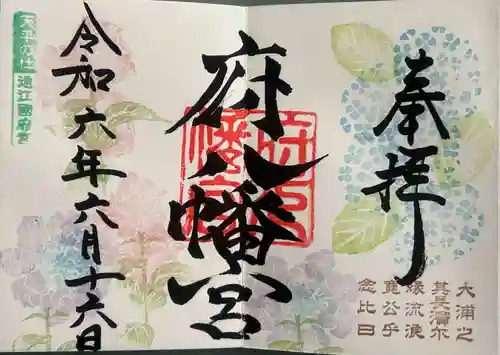 奉拝
大浦之
其長濱尓
縁流浪
寛公乎
念比日
府八幡宮
府八
幡宮
令和六年六月十六日
遠江國府宮